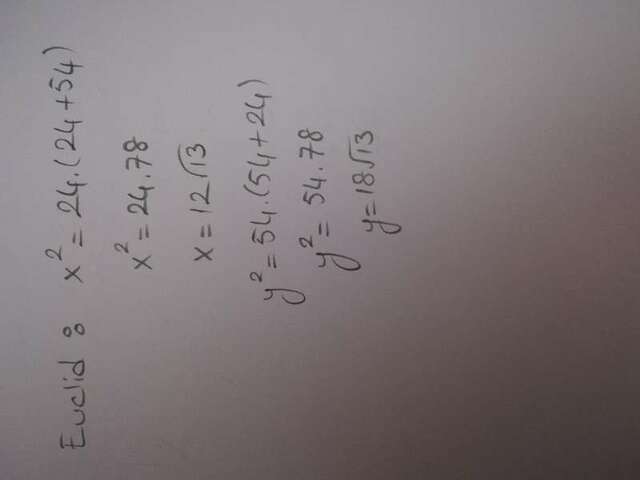 Euclid : x² = 24.(24+54)
x² = 24.78
x = 12√13
y² = 54.(54+24)
y² = 54.78
y = 18√13